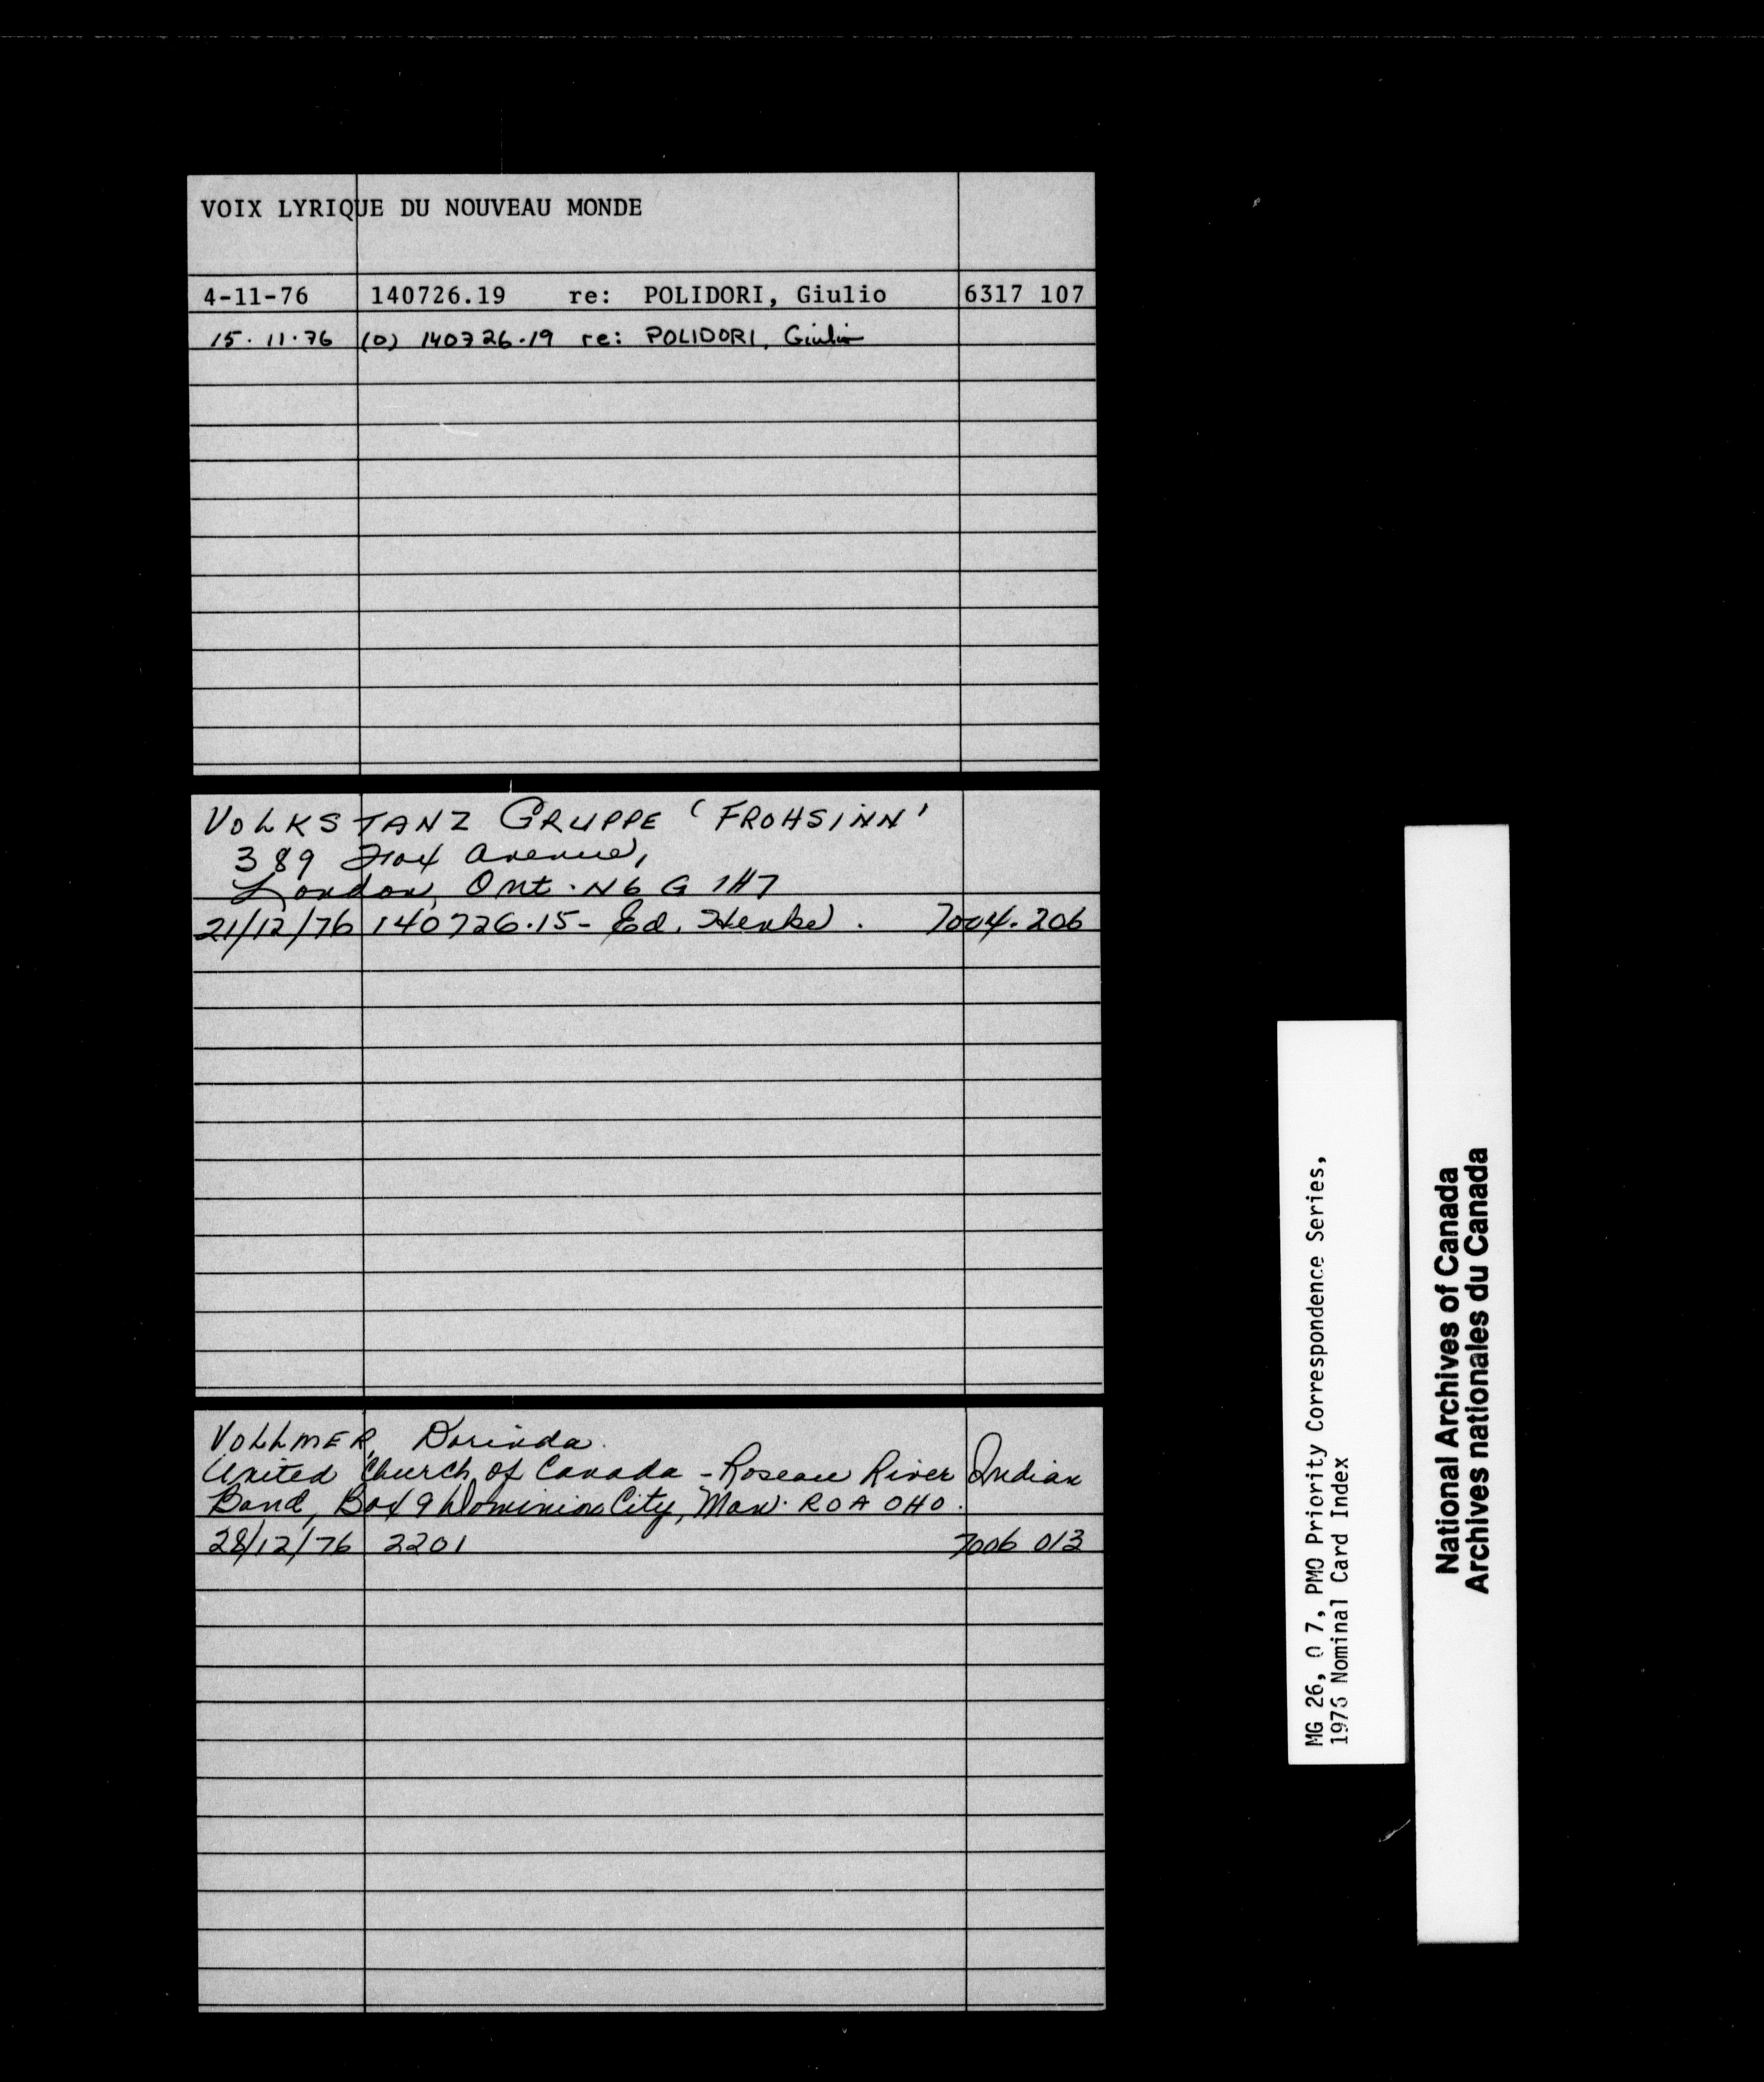 VOIX LYRIQUE DU NOUVEAU MONDE
4-11-76 140726.19 re: POLIDORI, Giulio 6317 107
15.11.76 (0) 140726.19 re: POLIDORI, Giulio
VOLKSTANZ GRUPPE 'FROHSINN'
389 Fox Avenue,
London, Ont. N6G 1H7
21/12/76 140726.15- Ed. Henkel. 7004.206
VOLLMER, Dorinda.
United Church of Canada - Roseau River Indian
Band, Box 9 Dominion City, Man. R0A 0H0.
28/12/76 2201 7006 013
MG 26, O 7, PMO Priority Correspondence Series,
1976 Nominal Card Index
National Archives of Canada
Archives nationales du Canada